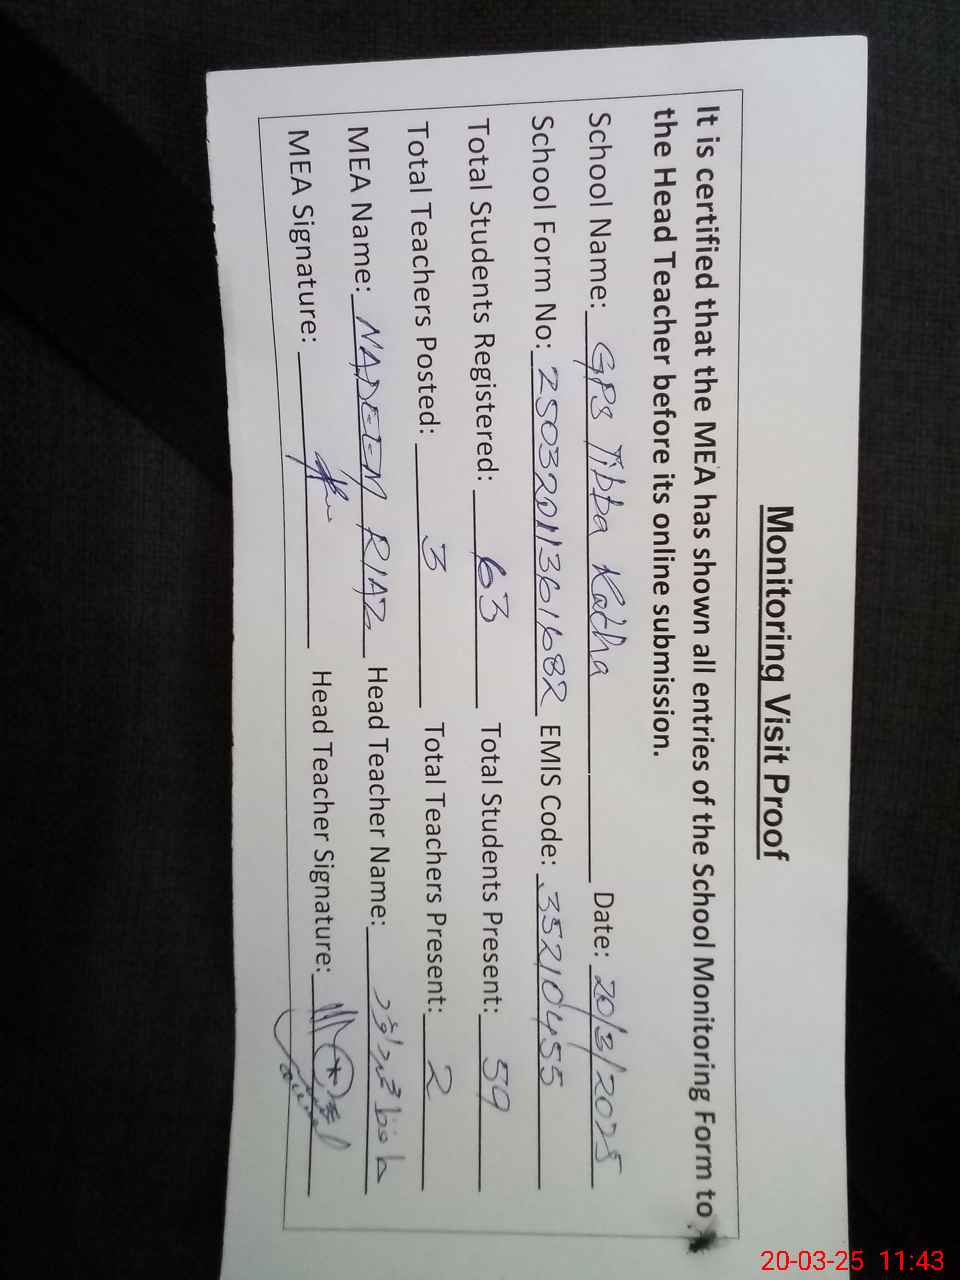 Monitoring Visit Proof
It is certified that the MEA has shown all entries of the School Monitoring Form to
the Head Teacher before its online submission.
School Name: GPS Tibba Katha Date: 20/3/2025
School Form No: 25032011361682 EMIS Code: 35210455
Total Students Registered: 63 Total Students Present: 59
Total Teachers Posted: 3 Total Teachers Present: 2
MEA Name: NADEEM RIAZ Head Teacher Name:
MEA Signature: Head Teacher Signature:
20-03-25 11:43